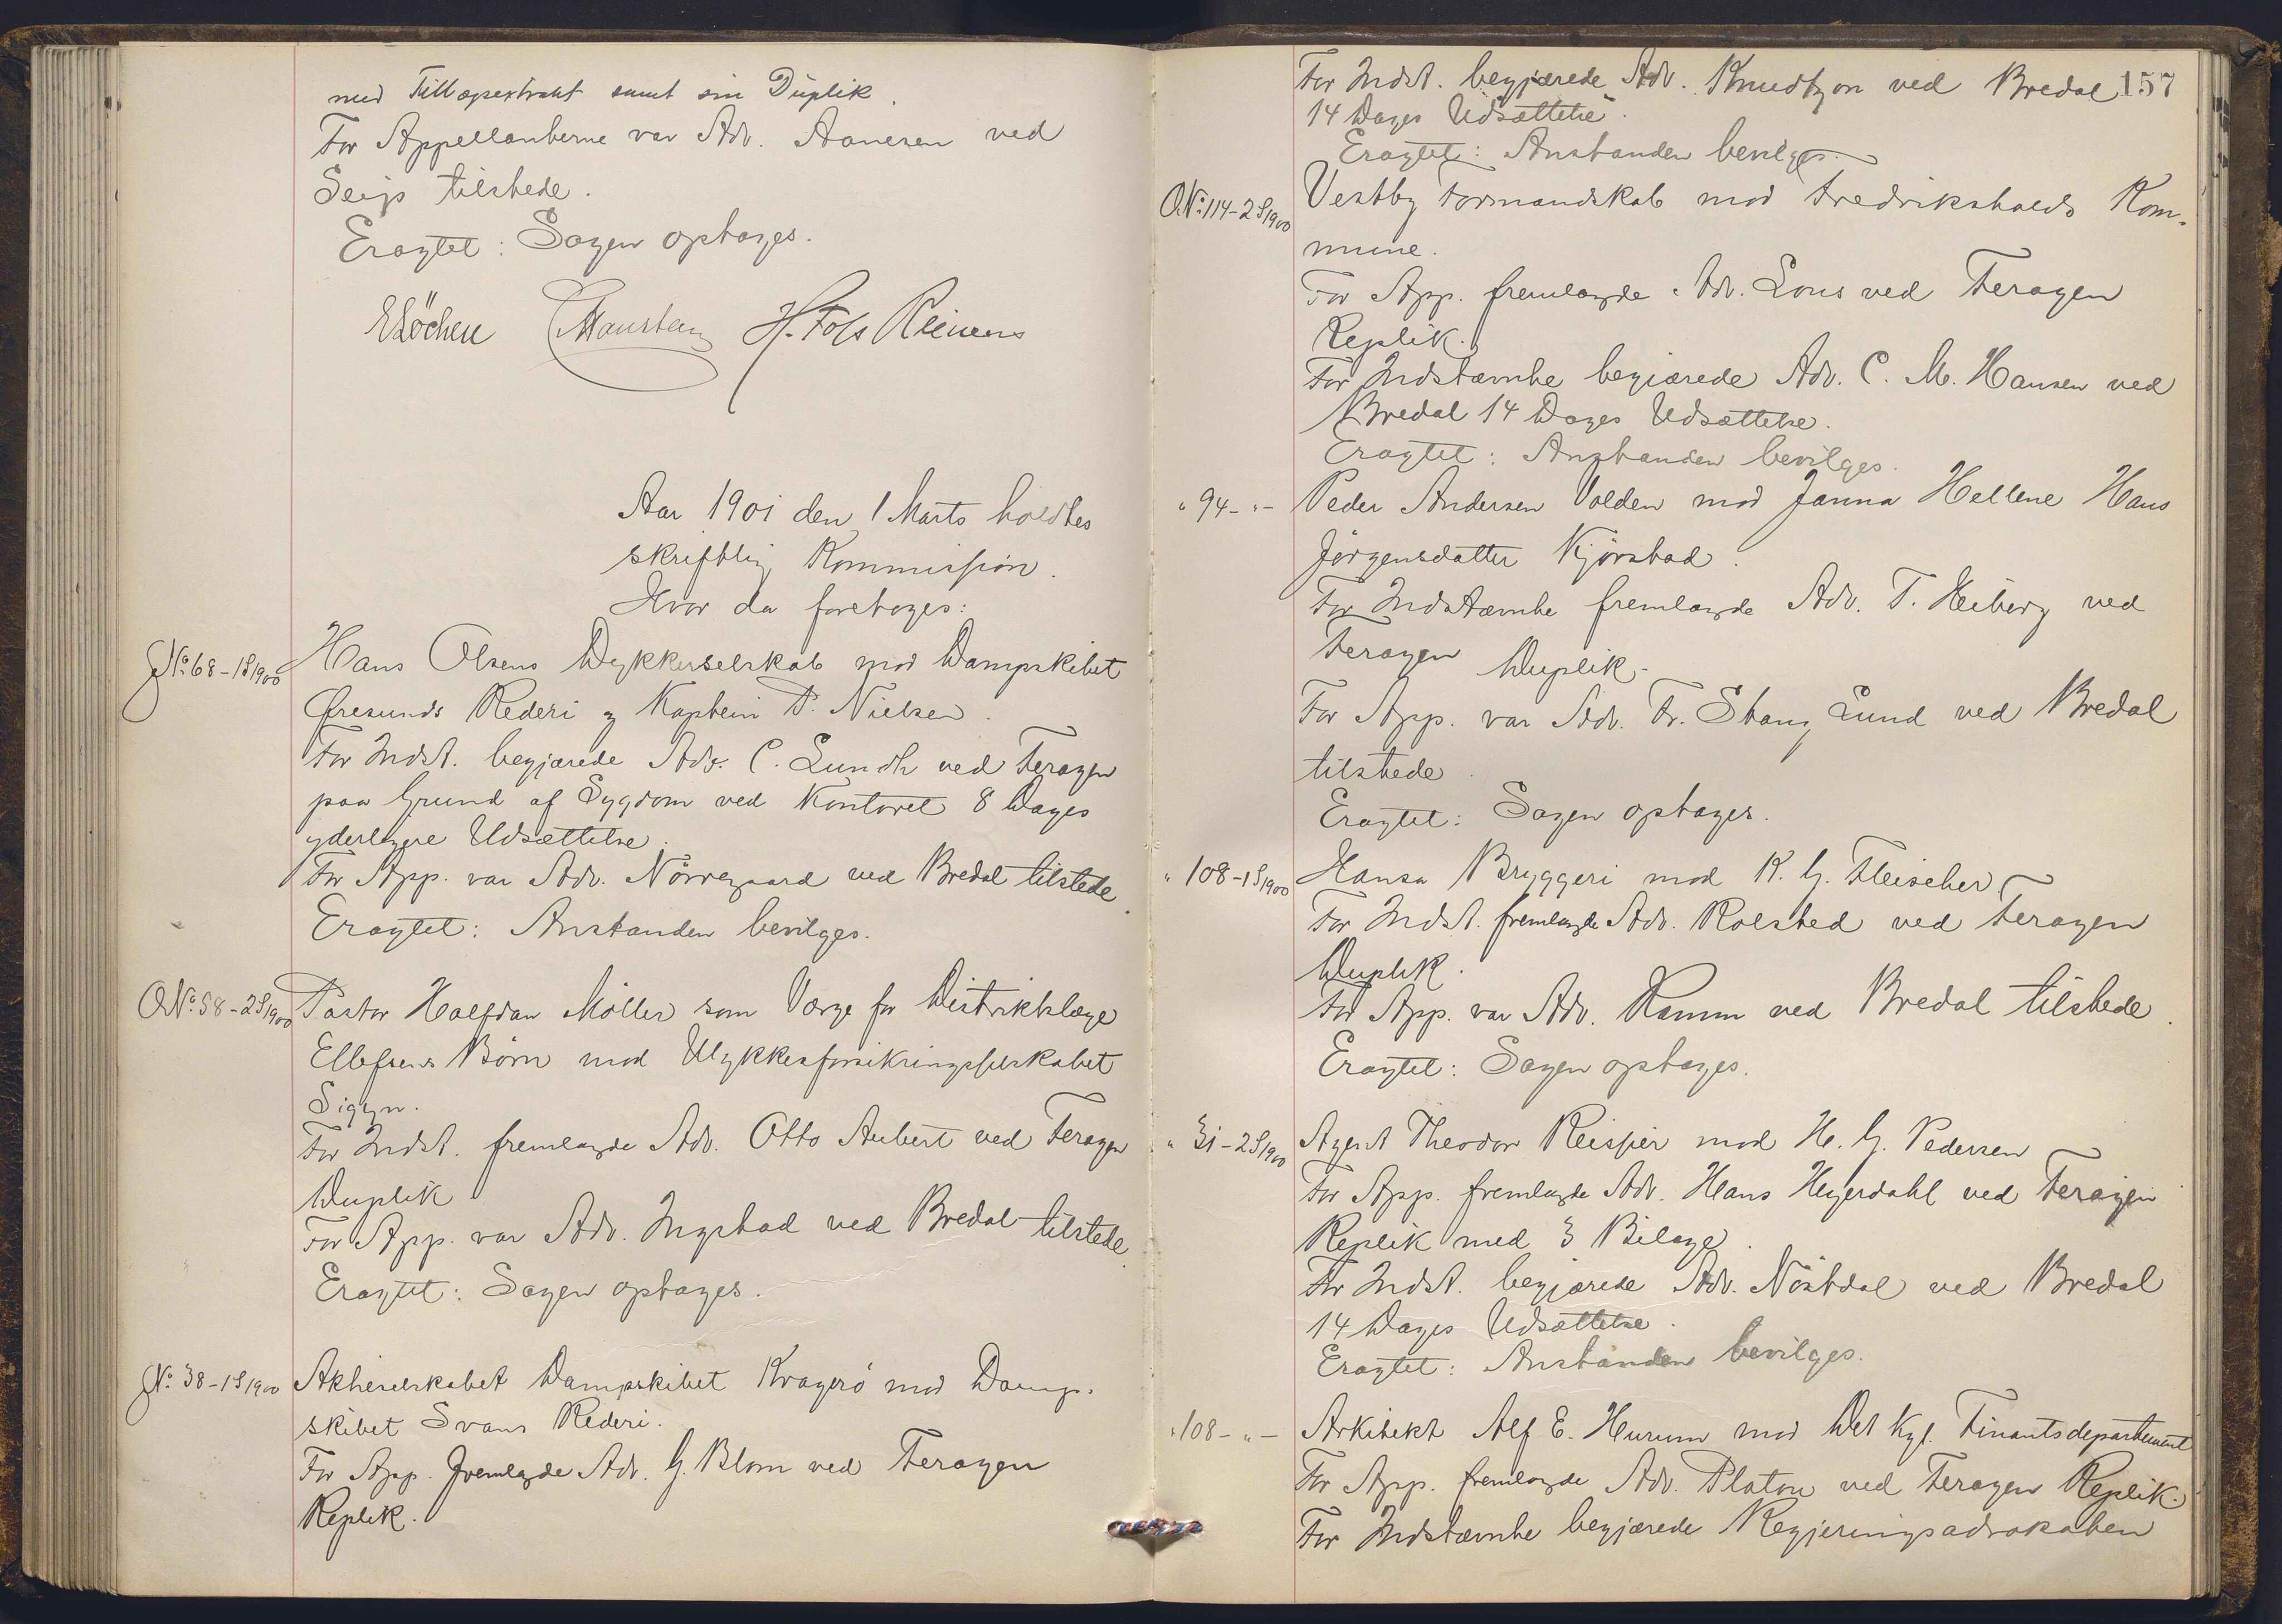 med Tillægsextrakt samt sin Duplik.
For Appellanterne var Adv. Aanesen ved
Seip tilstede.
Eragtet: Sagen optages.
E Löchen C Hansteen H. Foss Reimers
Aar 1901 den 1 Marts holdtes
skriftlig Kommission.
Hvor da foretoges:
J No. 68-1S/1900 Hans Olsens Dykkerselskab mod Dampskibet
Øresunds Rederi og Kaptein P. Nielsen.
For Indst. begjærede Adv. C. Lundh ved Feragen
paa Grund af Sygdom ved Kontoret 8 Dages
yderligere Udsættelse.
For App. var Adv. Nörregaard ved Bredal tilstede.
Eragtet: Anstanden bevilges.
O.No. 58-2S/1900 Pastor Halfdan Möller som Værge for Distriktslæge
Ellefsens Börn mod Ulykkesforsikringsselskabet
Sigyn.
For Indst. fremlagde Adv. Otto Aubert ved Feragen
Duplik
For App. var Adv. Ingstad ved Bredal tilstede.
Eragtet: Sagen optages.
J No. 38-1S/1900 Aktieselskabet Dampskibet Kragerö mod Damp-
skibet Svans Rederi.
For App. fremlagde Adv. G. Blom ved Feragen
Replik.
157
For Indst. begjærede Adv. Knudtzon ved Bredal
14 Dages Udsættelse.
Eragtet: Anstanden bevilges.
O.No. 114-2S/1900 Vestby Formandskab mod Fredrikshalds Kom-
mune.
For App. fremlagde Adv. Lous ved Feragen
Replik.
For Indstævnte begjærede Adv. C. M. Hansen ved
Bredal 14 Dages Udsættelse.
Eragtet: Anstanden bevilges.
" 94-"- Peder Andersen Volden mod Janna Hellene Hans
Jörgensdatter Kjörstad.
For Indstævnte fremlagde Adv. T. Heiberg ved
Feragen Duplik.
For App. var Adv. Fr. Stang Lund ved Bredal
tilstede.
Eragtet: Sagen optages.
" 108-1S/1900 Hansa Bryggeri mod K. G. Fleischer.
For Indst. fremlagde Adv. Rolsted ved Feragen
Duplik.
For App. var Adv. Hamm ved Bredal tilstede.
Eragtet: Sagen optages.
" 31-2S/1900 Agent Theodor Reissier mod H. G. Pedersen
For App. fremlagde Adv. Hans Heyerdahl ved Feragen
Replik med 3 Bilage.
For Indst. begjærede Adv. Nöstdal ved Bredal
14 Dages Udsættelse.
Eragtet: Anstanden bevilges.
" 108-"- Arkitekt Alf E. Hurum mod Det Kgl. Finantsdepartement
For App. fremlagde Adv. Platou ved Feragen Replik.
For Indstævnte begjærede Regjeringsadvokaten